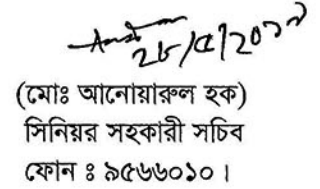 ২৮/৫/২০১৭
(মোঃ আনোয়ারুল হক)
সিনিয়র সহকারী সচিব
ফোন ঃ ৯৫৬৬০১০।